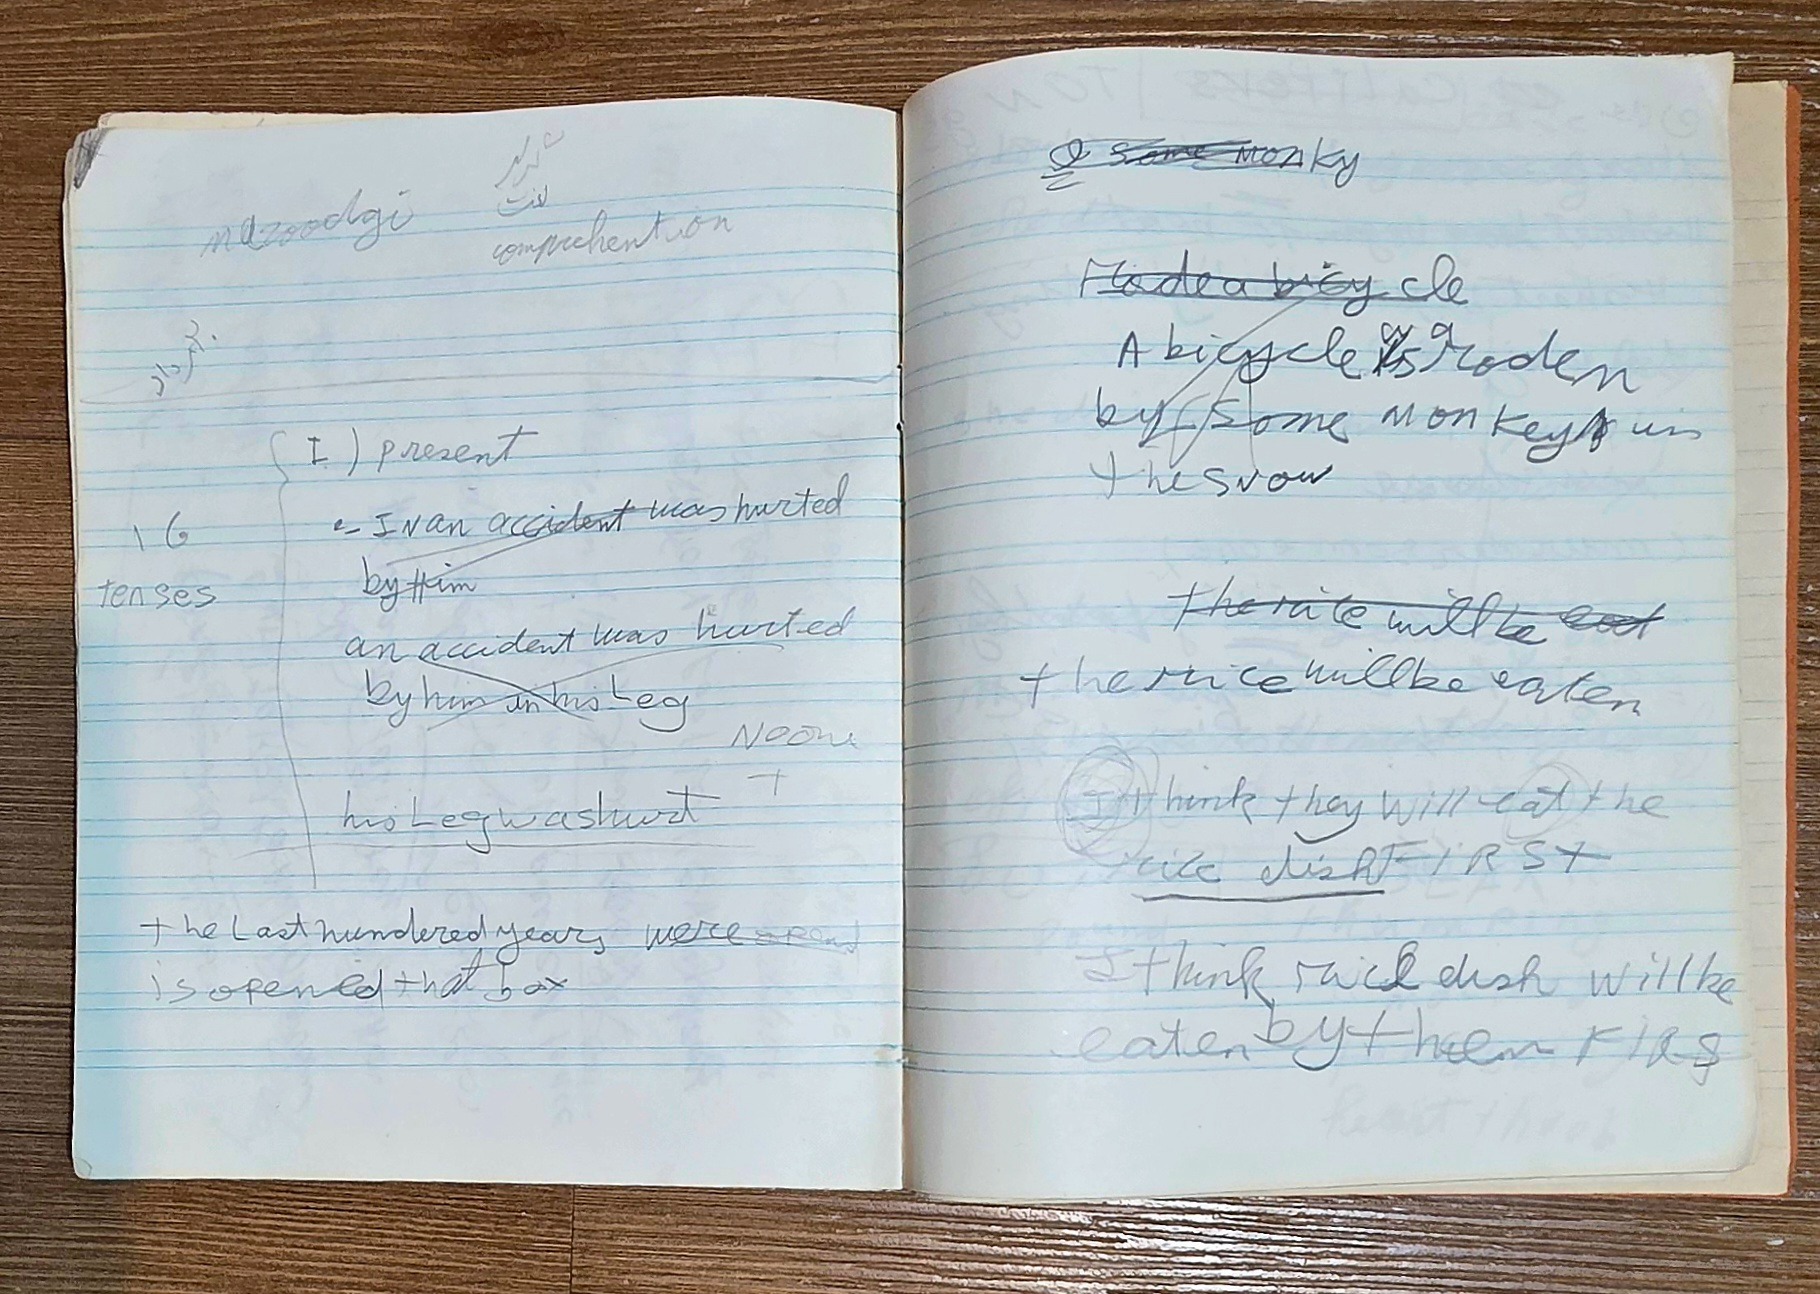 mazoodgi
لذت
comprehention
I ) present
16
tenses
- IN an accident was hurted
by Him
an accident was hurted
by him in his Leg
Noone
+
his Leg was hurt
the Last hundered years were
is opened that box
some monky
rode a bicycle
A bicycle is roden
by some monkey in
the snow
the rice will be eat
the rice will be eaten
I think they will eat the
rice dish FIRST
I think rice dish will be
eaten by them FIRS